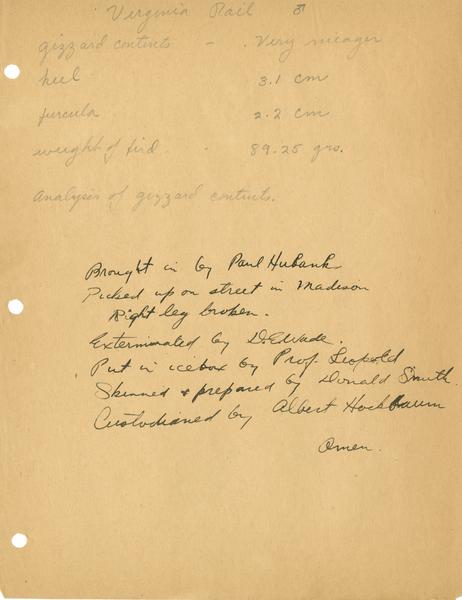 Virginia Rail ♂
gizzard contents - Very meager
keel 3.1 cm
furcula 2.2 cm
weight of bird. - 89.25 grs.
Analysis of gizzard contents.
Brought in by Paul Hubank
Picked up on street in Madison
Right leg broken.
Exterminated by D.E. Wade.
Put in icebox by Prof. Leopold
Skinned & prepared by Donald Smith.
Custodianed by Albert Hochbaum
Omen.